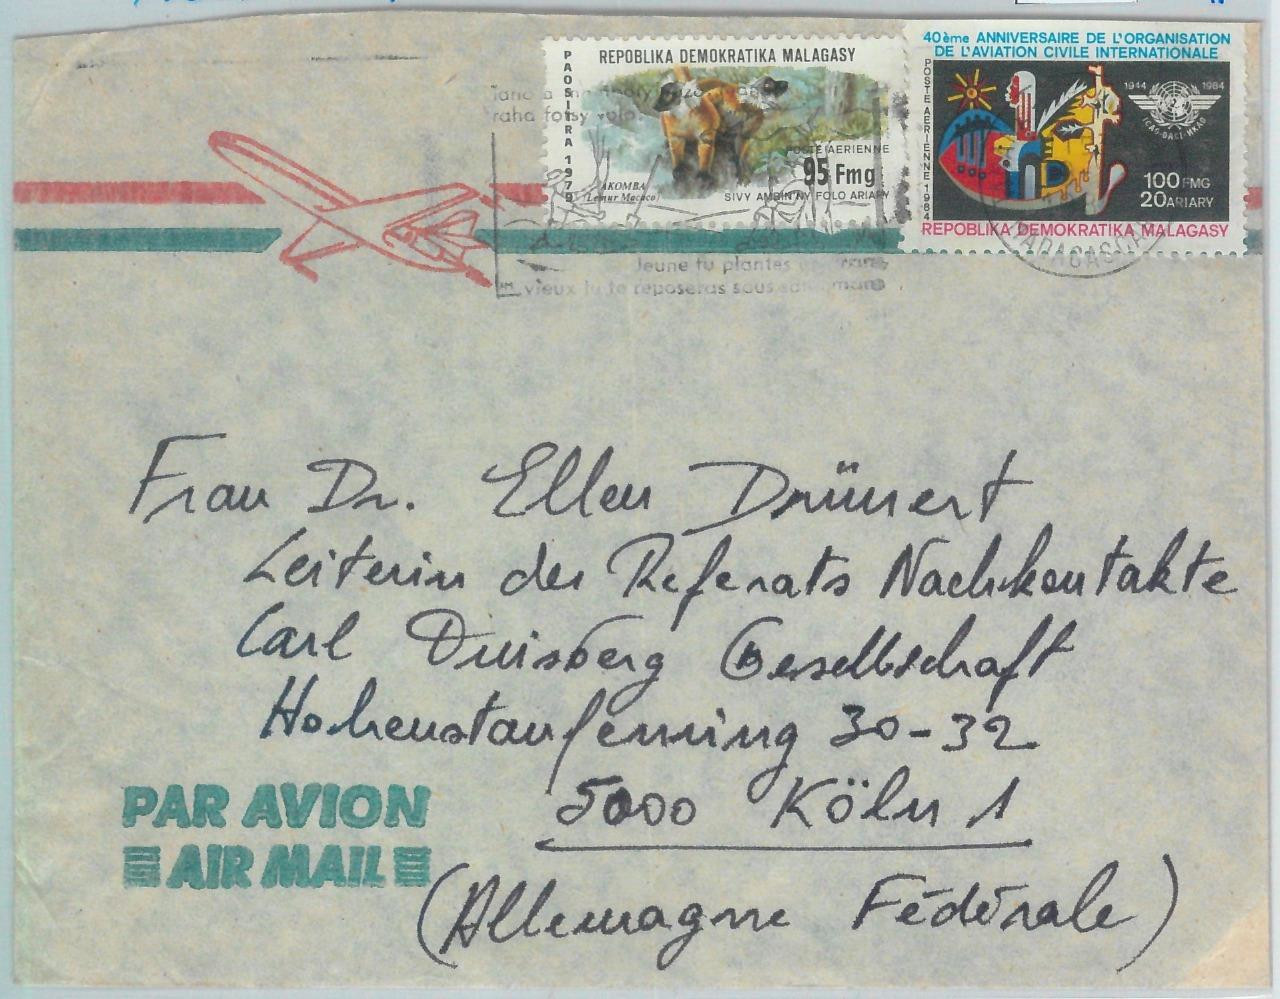 REPOBLIKA DEMOKRATIKA MALAGASY
PAOSITRA 1979
POSTE AERIENNE
95 Fmg
AKOMBA
(Lemur Macaco)
SIVY AMBIN'NY FOLO ARIARY
40ème ANNIVERSAIRE DE L'ORGANISATION
DE L'AVIATION CIVILE INTERNATIONALE
POSTE AERIENNE 1984
1944 1984
ICAO-OACI-ИКАО
100 FMG
20 ARIARY
REPOBLIKA DEMOKRATIKA MALAGASY
MADAGASCAR
raha fotsy volo
Jeune tu plantes
vieux tu te reposeras sous
Frau Dr. Ellen Drünert
Leiterin des Referats Nachkontakte
Carl Duisberg Gesellschaft
Hohenstaufenring 30-32
5000 Köln 1
(Allemagne Fédérale)
PAR AVION
AIR MAIL